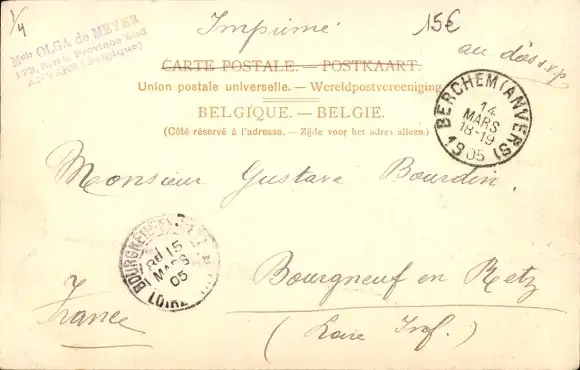 1/4
Imprimé
15€
au dos s.v.p
Melle OLGA de MEYER
173, Rue la Province Sud
ANVERS (Belgique)
CARTE POSTALE. — POSTKAART.
Union postale universelle. — Wereldpostvereeniging
BELGIQUE. — BELGIE.
(Côté réservé à l'adresse. — Zijde voor het adres alleen.)
BERCHEM (ANVERS)
14
MARS
18-19
1905
Monsieur Gustave Bourdin.
15
MARS
05
LOIRE
Bourgneuf en Retz
France
(Loire Inf.)